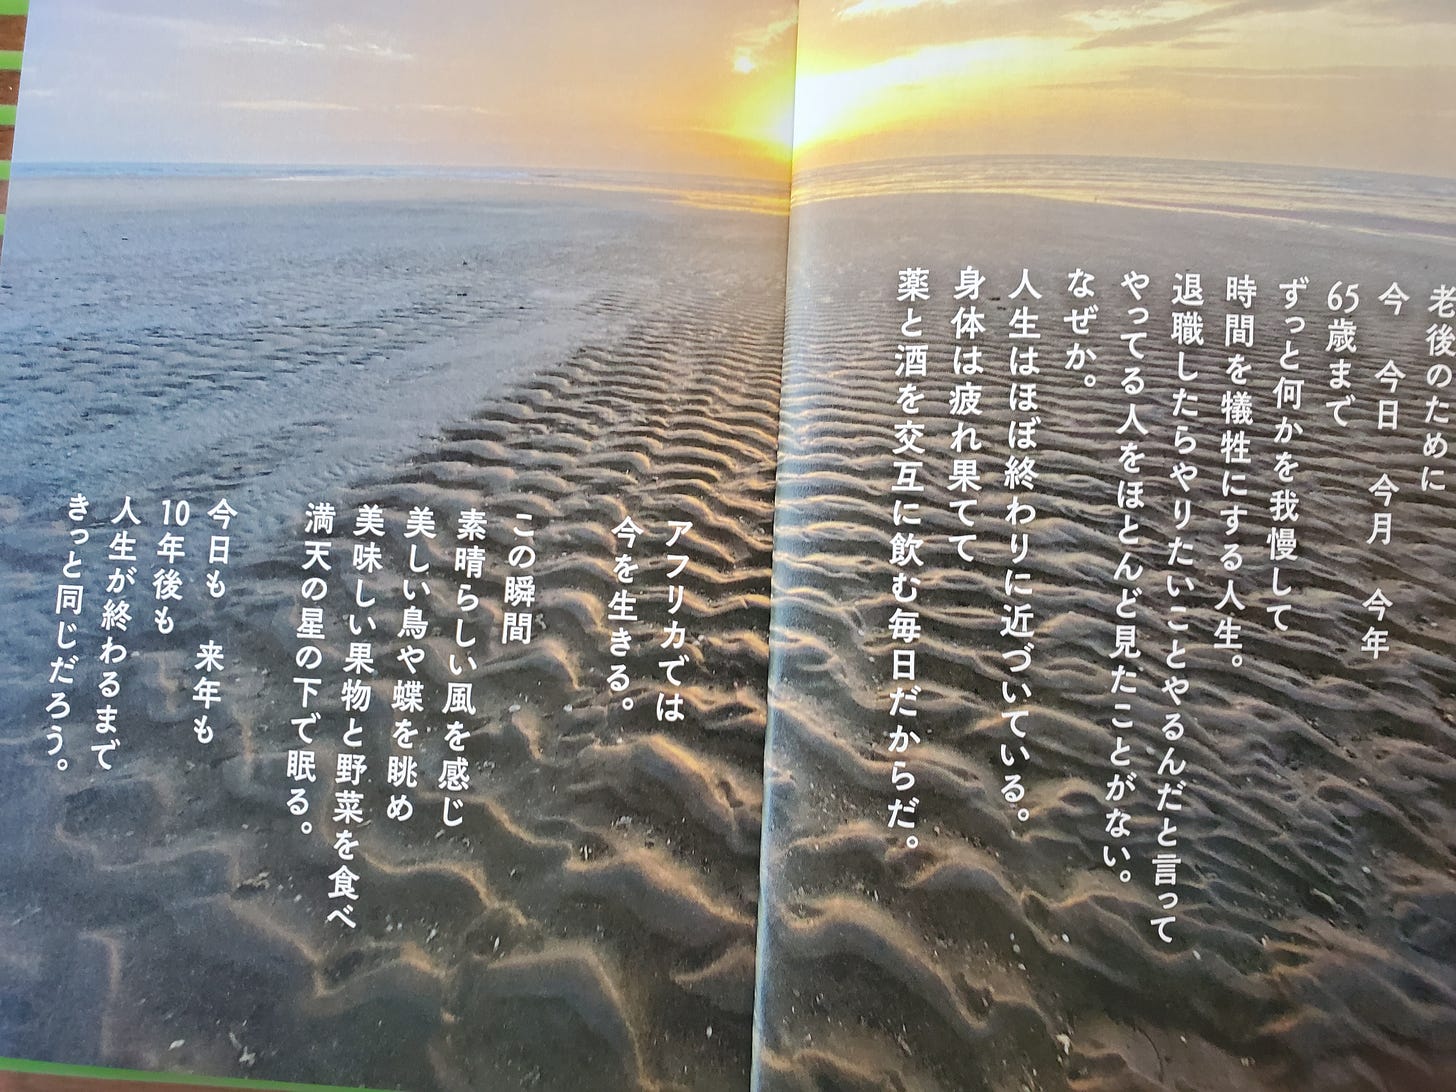 老後のために
今　今日　今月　今年
65歳まで
ずっと何かを我慢して
時間を犠牲にする人生。
退職したらやりたいことやるんだと言って
やってる人をほとんど見たことがない。
なぜか。
人生はほぼ終わりに近づいている。
身体は疲れ果てて
薬と酒を交互に飲む毎日だからだ。
アフリカでは
今を生きる。
この瞬間
素晴らしい風を感じ
美しい鳥や蝶を眺め
美味しい果物と野菜を食べ
満天の星の下で眠る。
今日も　来年も
10年後も
人生が終わるまで
きっと同じだろう。